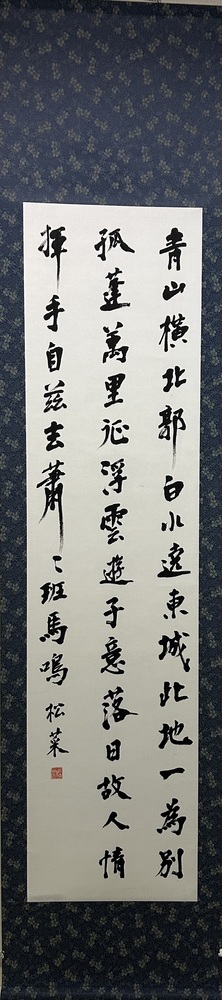 青山橫北郭白水遶東城此地一為別
孤蓬萬里征浮雲遊子意落日故人情
揮手自茲去蕭〻班馬鳴 松菜